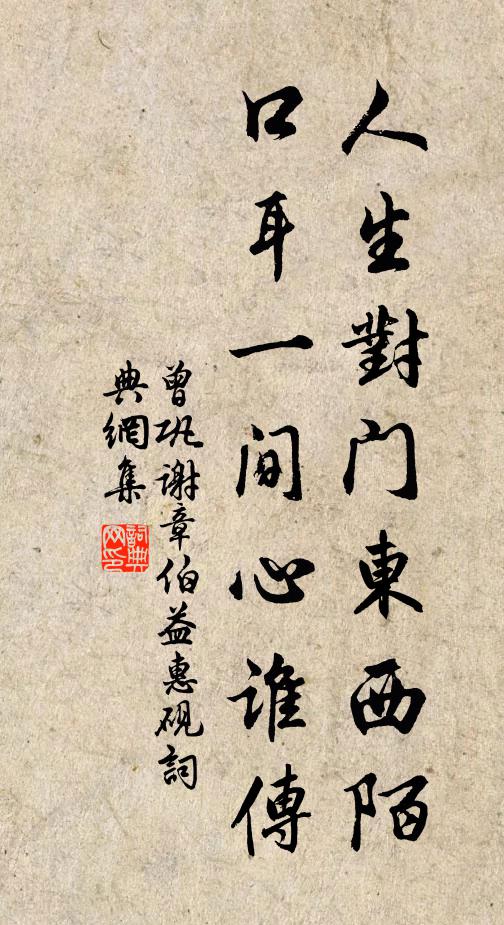 人生對門東西陌
口耳一間心誰傳
曾巩谢章伯益惠砚詞
典網集
詞典網印